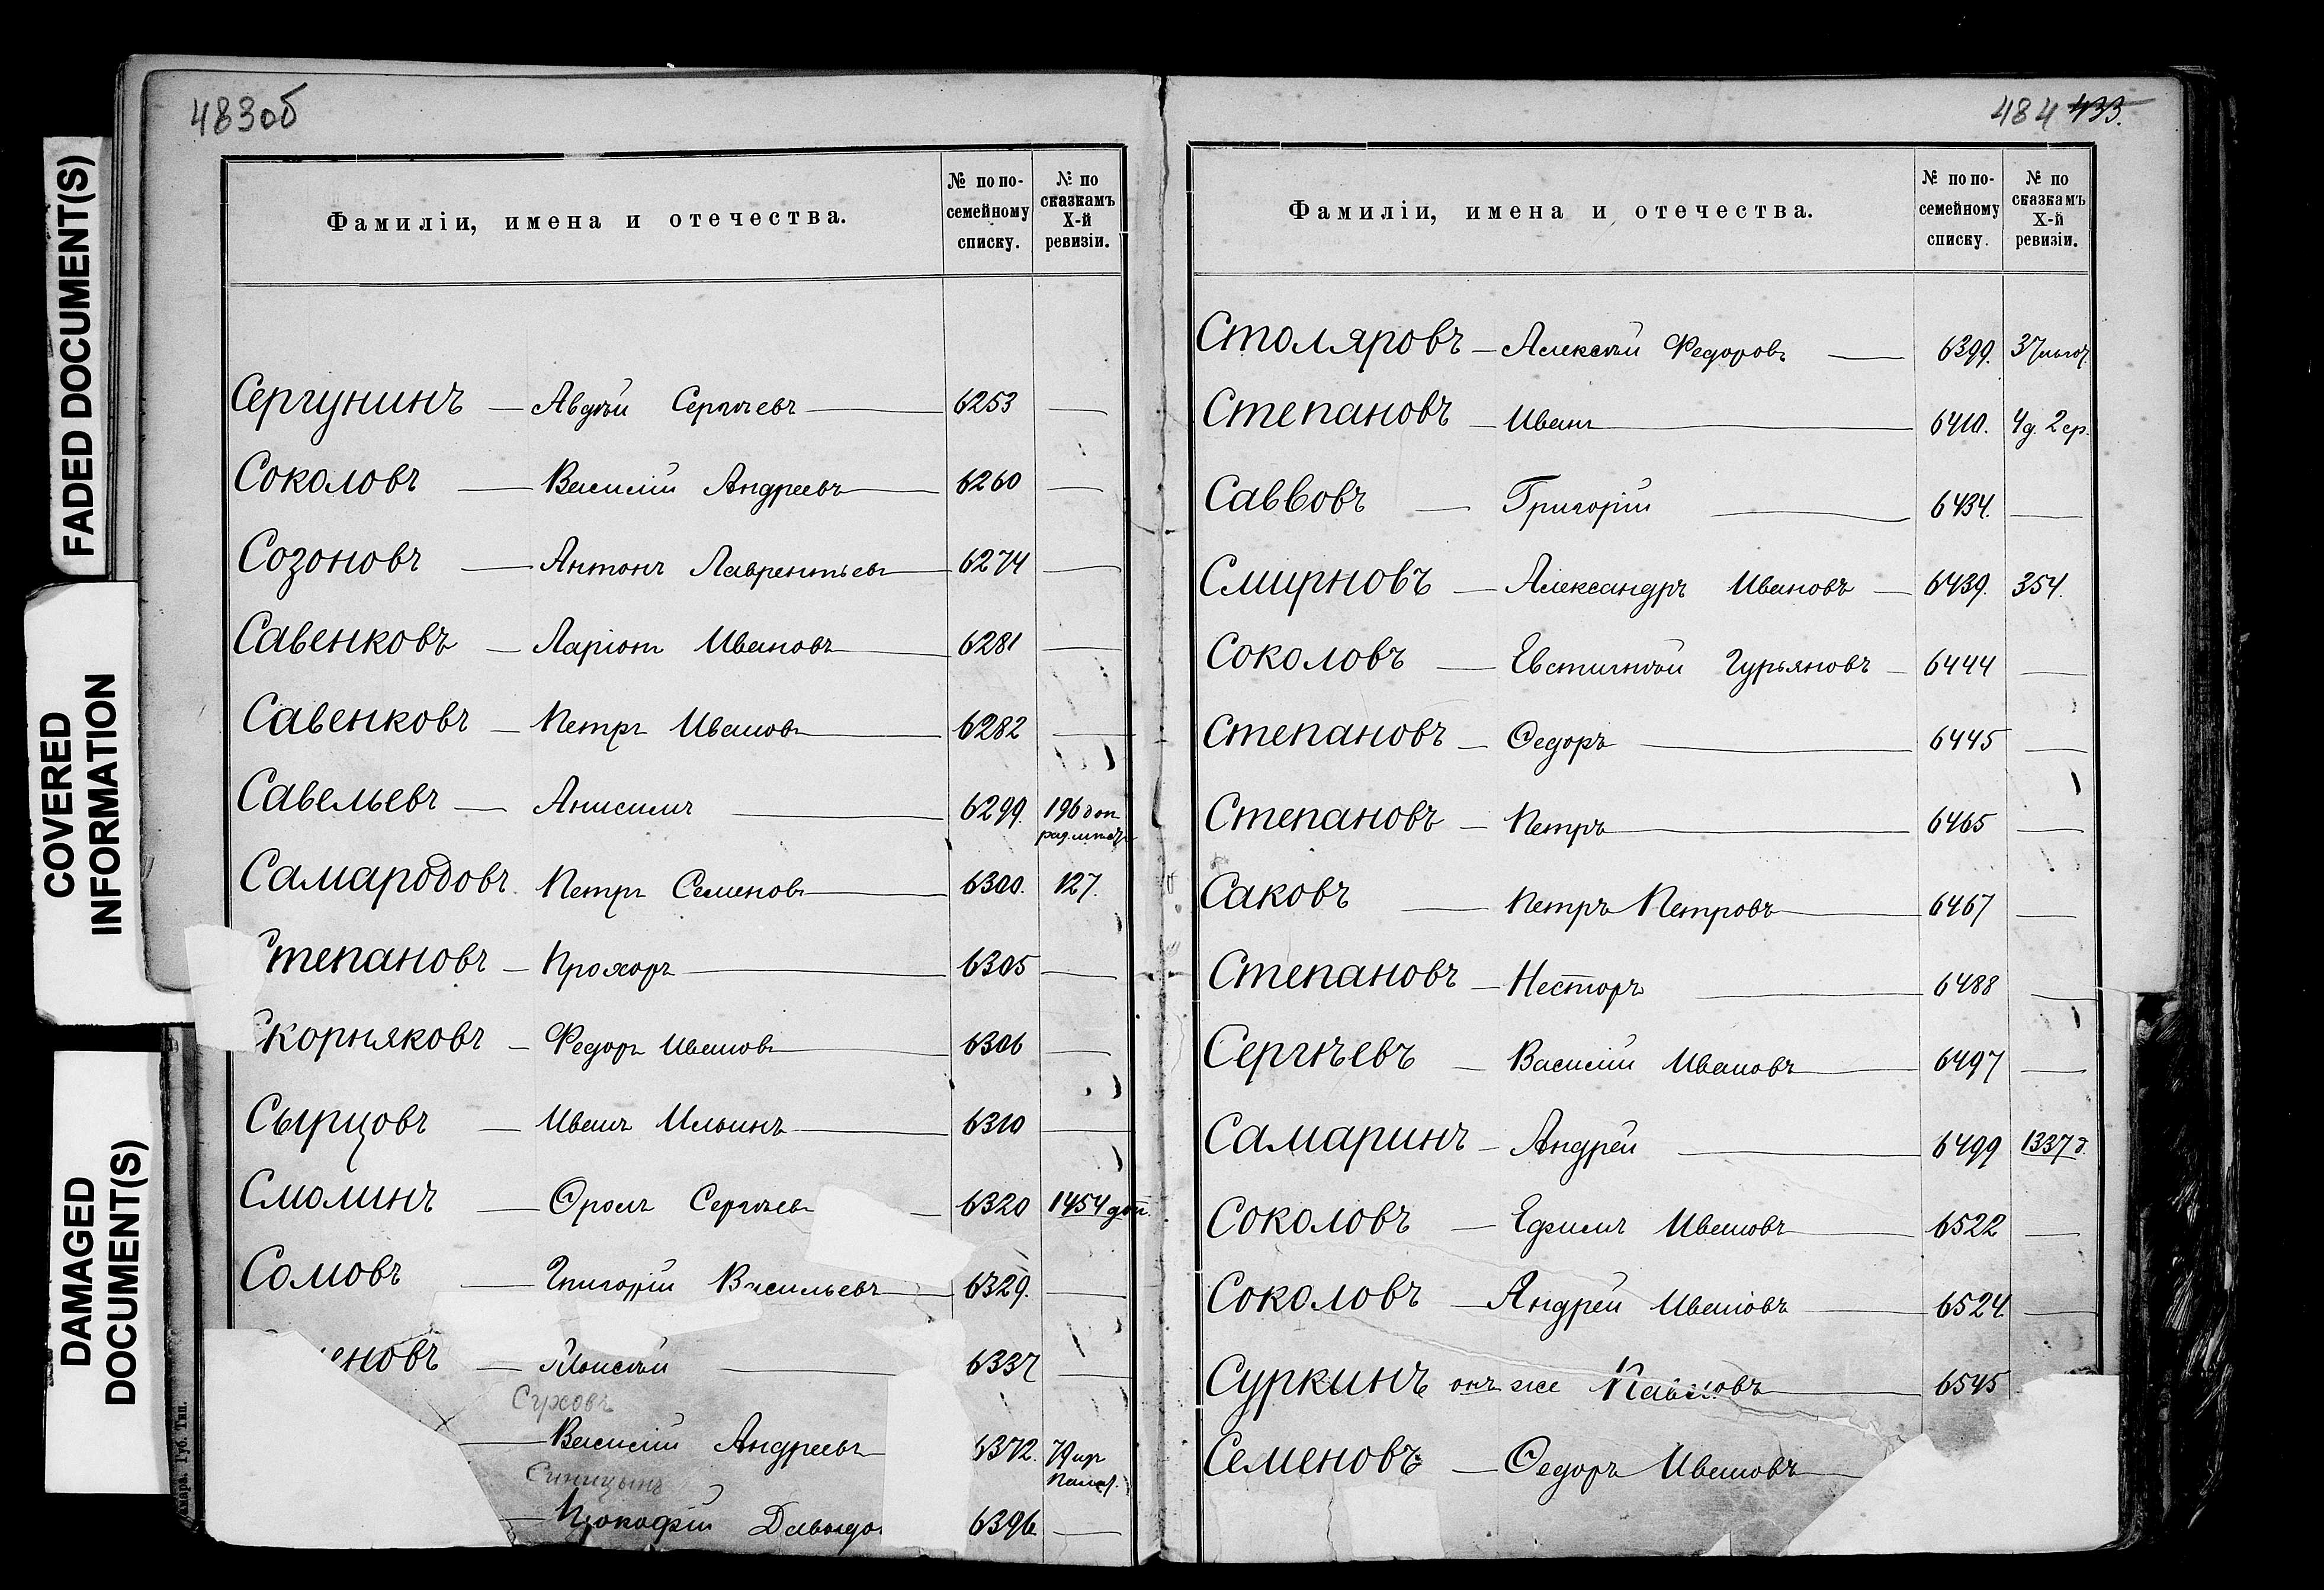 FADED DOCUMENT(S)
COVERED
INFORMATION
DAMAGED
DOCUMENT(S)
483об
Фамиліи, имена и отечества. № по по-семейному списку. № по сказкамъ X-й ревизіи.
Сергунинъ — Авдѣй Сергѣевъ 6253 —
Соколовъ — Василій Андреевъ 6260 —
Созоновъ — Антонъ Лаврентьевъ 6274 —
Савенковъ — Ларіонъ Ивановъ 6281 —
Савенковъ — Петръ Ивановъ 6282 —
Савельевъ — Анисимъ — 6299. 196 доп
Самародовъ. Петръ Семеновъ 6300. 127.
тепановъ — Прохоръ 6305 —
Скорняковъ — Федоръ Ивановъ 6306 —
Сырцовъ — Иванъ Ильинъ 6310 —
Смолинъ — Фролъ Сергѣевъ — 6320 1454 доп.
Сомовъ — Григорій Васильевъ 6329. —
еновъ — Моисѣй — 6337 —
Суховъ
— Василій Андреевъ 6372. 79
Синицынъ
— Прокофій Давыдо 6396. —
Самара. Губ. Тип.
484 433.
Фамиліи, имена и отечества. № по по-семейному списку. № по сказкамъ X-й ревизіи.
Столяровъ — Алексѣй Федоровъ — 6399. 37
Степановъ — Иванъ 6410. 4д. 2ср.
Саввовъ — Григорій — 6434. —
Смирновъ — Александръ Ивановъ — 6439. 354.
Соколовъ — Евстигнѣй Гурьяновъ — 6444 —
Степановъ — Федоръ — 6445 —
Степановъ — Петръ 6465 —
Саковъ — Петръ Петровъ 6467 —
Степановъ — Несторъ — 6488 —
Сергѣевъ — Василій Ивановъ 6497 —
Самаринъ — Андрей — 6499 1337 д.
Соколовъ — Ефимъ Ивановъ 6522 —
Соколовъ — Андрей Ивановъ — 6524. —
Суркинъ онъ же Павловъ 6545
Семеновъ — Федоръ Ивановъ